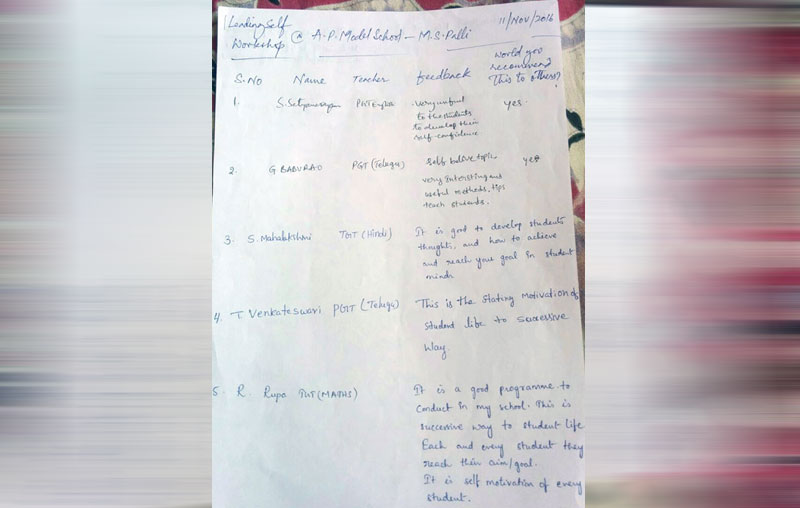 Leading Self
Workshop @ A.P. Model School - M.S. Palli 11/Nov/2016
S.No Name Teacher feedback would you recommend This to others?
1. yes.
Very useful
to the students
to develop their
self-confidence
2. G BABURAO PGT (Telugu) yes
Self belive topic
very intersting and
useful methods, tips
teach students.
3. S. Mahalakshmi TGT (Hindi) It is good to develop students
thoughts, and how to achieve
and reach your goal in student
minds
4. T. Venkateswari PGT (Telugu) This is the Stating Motivation of
student life to successive
way.
5. R. Rupa (MATHS) It is a good programme to
conduct in my school. This is
successive way to student life
Each and every student they
reach their aim/goal.
It is self motivation of every
student.